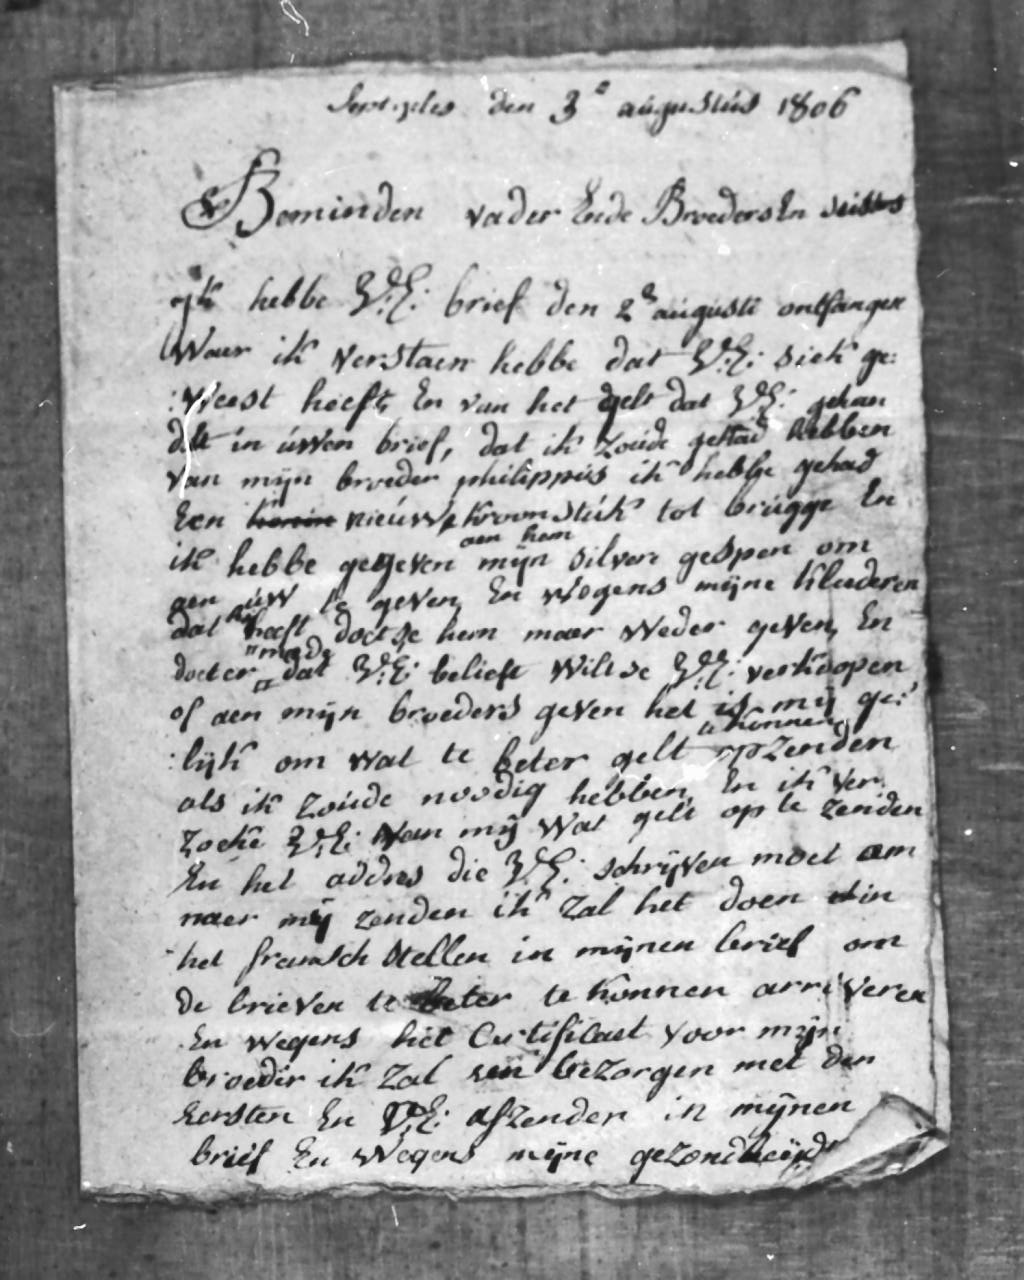 den 3e augustus 1806
Beminden vader Ende Broeders En susters
ik hebbe VE: brief den 2e augusti ontfangen
Waer ik verstaen hebbe dat VE: siek ge:
:weest heeft, En van het gelt dat VE:
in uwen brief, dat ik zoude gehad hebben
van mijn broeder philippus ik hebbe gehad
Een nieúwe kroonstúk tot brúgge En
ik hebbe gegeven aen hem mijn silvere gespen om
aen uw te geven, En wegens mijne kleederen
dat heeft doetse hem maer weder geven, En
doeter mede dat VE: belieft wiltse VE: verkoopen
of aen mijn broeders geven het is mij ge:
:lijk om wat te beter gelt te konnen opzenden
als ik zoúde noodig hebben, En ik ver:
zoeke VE: van mij wat gelt op te zenden
En het addres die VE: schrijven moet om
naer mij zenden ik zal het doen in
het fransch stellen in mijnen brief om
de brieven te beter te konnen arriveren
En wegens het Certificaet voor mijn
broeder ik zal bezorgen met den
Eersten En VE: afzenden in mijnen
brief En Wegens mijne gezondheijd